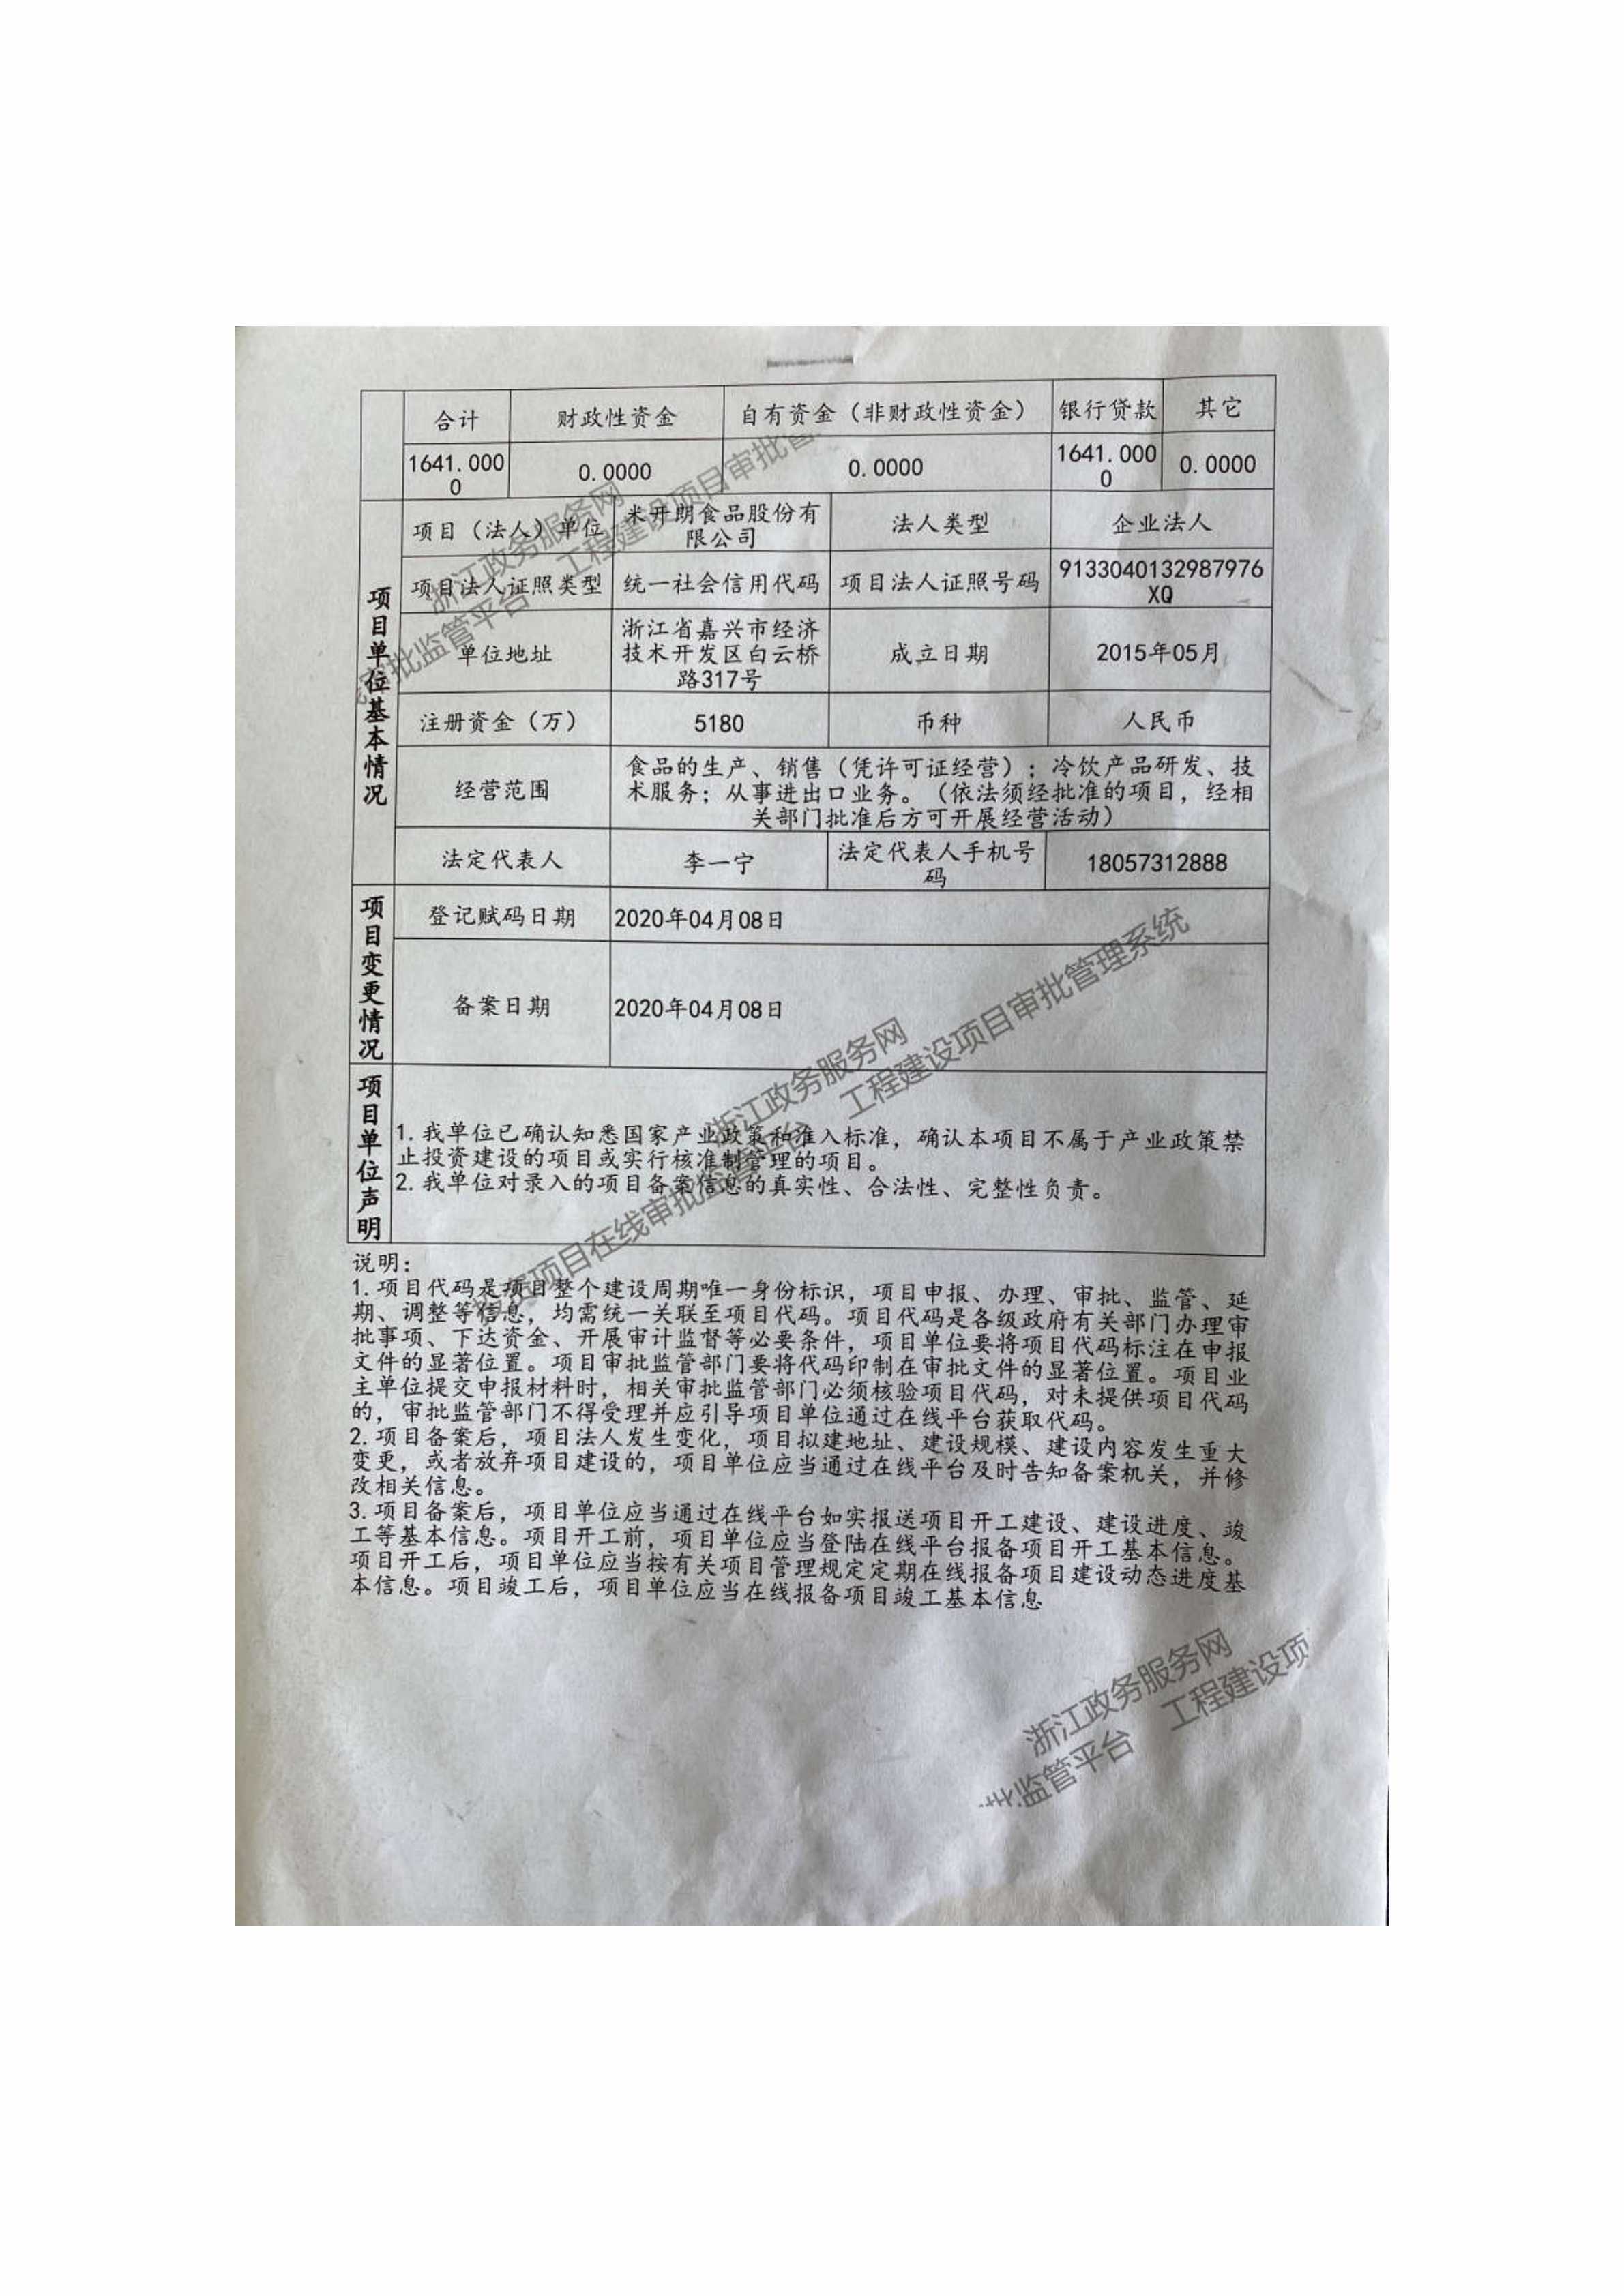 合计 财政性资金 自有资金（非财政性资金） 银行贷款 其它
1641.000
0
0.0000
0.0000
1641.000
0
0.0000
项目单位基本情况
项目（法人）单位
米开朗食品股份有
限公司
法人类型
企业法人
项目法人证照类型
统一社会信用代码
项目法人证照号码
9133040132987976
XQ
单位地址
浙江省嘉兴市经济
技术开发区白云桥
路317号
成立日期
2015年05月
注册资金（万）
5180
币种
人民币
经营范围
食品的生产、销售（凭许可证经营）；冷饮产品研发、技
术服务；从事进出口业务。（依法须经批准的项目，经相
关部门批准后方可开展经营活动）
法定代表人
李一宁
法定代表人手机号
码
18057312888
项目变更情况
登记赋码日期
2020年04月08日
备案日期
2020年04月08日
项目单位声明
1.我单位已确认知悉国家产业政策和准入标准，确认本项目不属于产业政策禁
止投资建设的项目或实行核准制管理的项目。
2.我单位对录入的项目备案信息的真实性、合法性、完整性负责。
说明：
1.项目代码是项目整个建设周期唯一身份标识，项目申报、办理、审批、监管、延
期、调整等信息，均需统一关联至项目代码。项目代码是各级政府有关部门办理审
批事项、下达资金、开展审计监督等必要条件，项目单位要将项目代码标注在申报
文件的显著位置。项目审批监管部门要将代码印制在审批文件的显著位置。项目业
主单位提交申报材料时，相关审批监管部门必须核验项目代码，对未提供项目代码
的，审批监管部门不得受理并应引导项目单位通过在线平台获取代码。
2.项目备案后，项目法人发生变化，项目拟建地址、建设规模、建设内容发生重大
变更，或者放弃项目建设的，项目单位应当通过在线平台及时告知备案机关，并修
改相关信息。
3.项目备案后，项目单位应当通过在线平台如实报送项目开工建设、建设进度、竣
工等基本信息。项目开工前，项目单位应当登陆在线平台报备项目开工基本信息。
项目开工后，项目单位应当按有关项目管理规定定期在线报备项目建设动态进度基
本信息。项目竣工后，项目单位应当在线报备项目竣工基本信息
浙江政务服务网
工程建设项目审批管
审批监管平台
浙江政务服务网
工程建设项目审批管理系统
项目在线审批监管平台
浙江政务服务网
工程建设项
监管平台